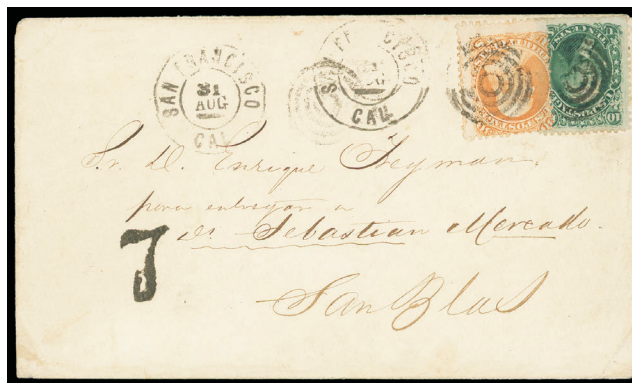 SAN FRANCISCO
31
AUG
CAL
CISCO
CAL
10
Sr. D. Enrique Heyman
para entregar a
Dn Sebastian Mercado.
7
San Blas